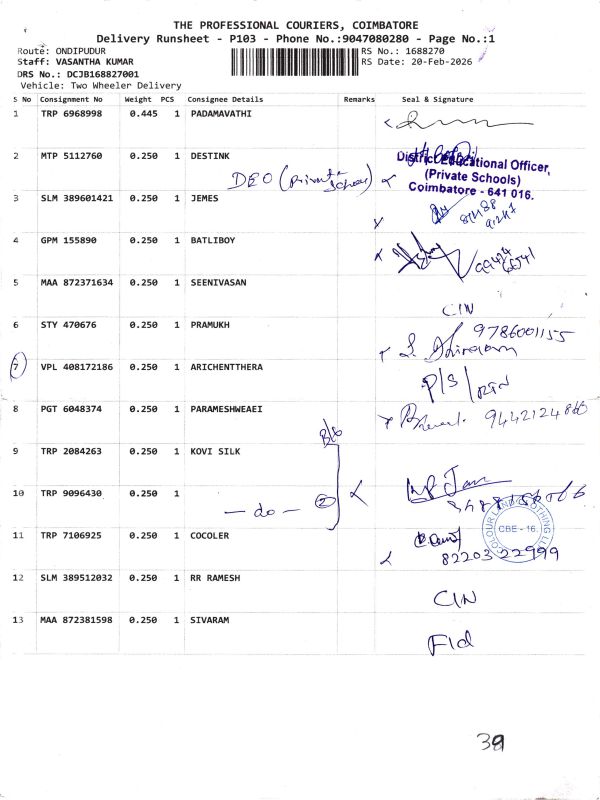 THE PROFESSIONAL COURIERS, COIMBATORE
Delivery Runsheet - P103 - Phone No.:9047080280 - Page No.:1
Route: ONDIPUDUR
RS No.: 1688270
Staff: VASANTHA KUMAR
RS Date: 20-Feb-2026
DRS No.: DCJB168827001
Vehicle: Two Wheeler Delivery
S No Consignment No Weight PCS Consignee Details Remarks Seal & Signature
1 TRP 6968998 0.445 1 PADAMAVATHI
2 MTP 5112760 0.250 1 DESTINK
DEO (Private School)
District Educational Officer,
(Private Schools)
Coimbatore - 641 016.
3 SLM 389601421 0.250 1 JEMES
4 GPM 155890 0.250 1 BATLIBOY
5 MAA 872371634 0.250 1 SEENIVASAN
CIN
6 STY 470676 0.250 1 PRAMUKH
9786001155
7 VPL 408172186 0.250 1 ARICHENTTHERA
P/S/RTN
8 PGT 6048374 0.250 1 PARAMESHWEAEI
9442124860
9 TRP 2084263 0.250 1 KOVI SILK
10 TRP 9096430 0.250 1
- do - 2
11 TRP 7106925 0.250 1 COCOLER
COLOUR LAND CLOTHING LLP
CBE - 16.
82203 22999
12 SLM 389512032 0.250 1 RR RAMESH
CIN
13 MAA 872381598 0.250 1 SIVARAM
39